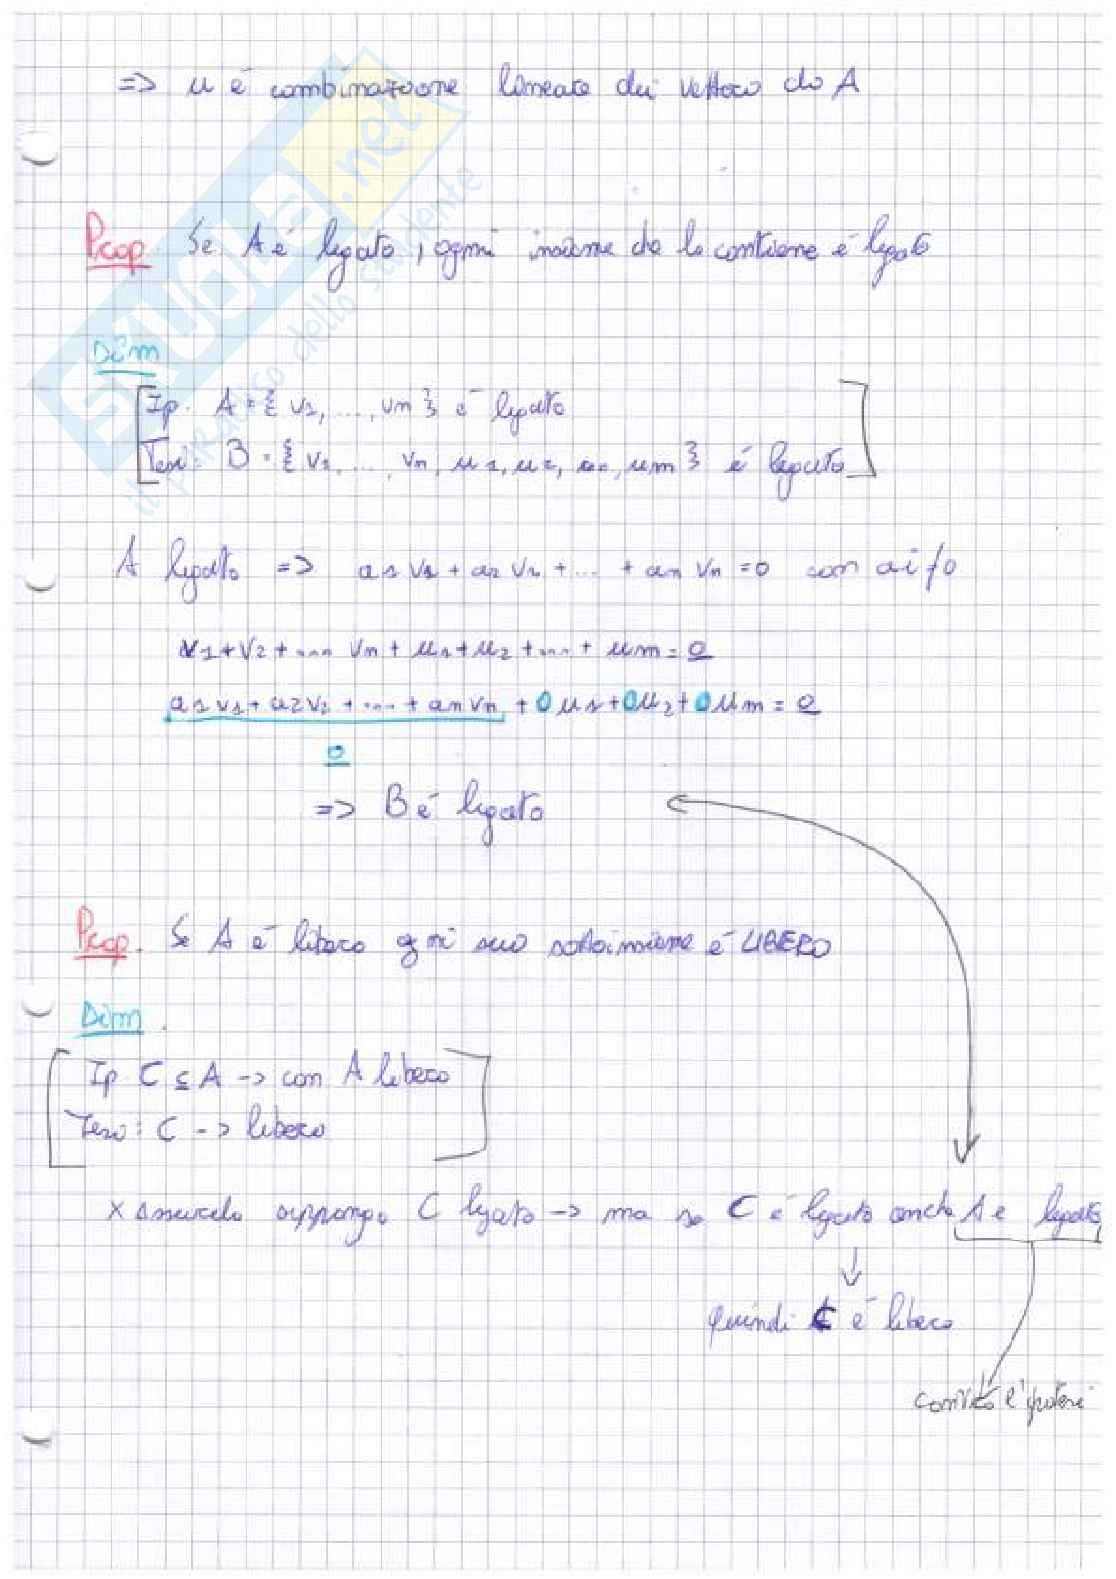 => u è combinazione lineare dei vettori di A
Prop. Se A è legato, ogni insieme che lo contiene è legato
Dim
Ip. A = { v1, ..., vn } è legato
Tesi: B = { v1, ..., vn, u1, u2, ..., um } è legato
A legato => a1 v1 + a2 v2 + ... + an vn = 0 con ai ≠ 0
v1 + v2 + ... vn + u1 + u2 + ... + um = 0
a1 v1 + a2 v2 + ... + an vn + 0 u1 + 0 u2 + 0 um = 0
0
=> B è legato
Prop. Se A è libero ogni suo sottoinsieme è LIBERO
Dim.
Ip C ⊆ A -> con A libero
Tesi: C -> libero
x assurdo suppongo C legato -> ma se C è legato anche A è legato
↓
quindi C è libero
contro l'ipotesi
SKUOLA.net
il paradiso dello studente